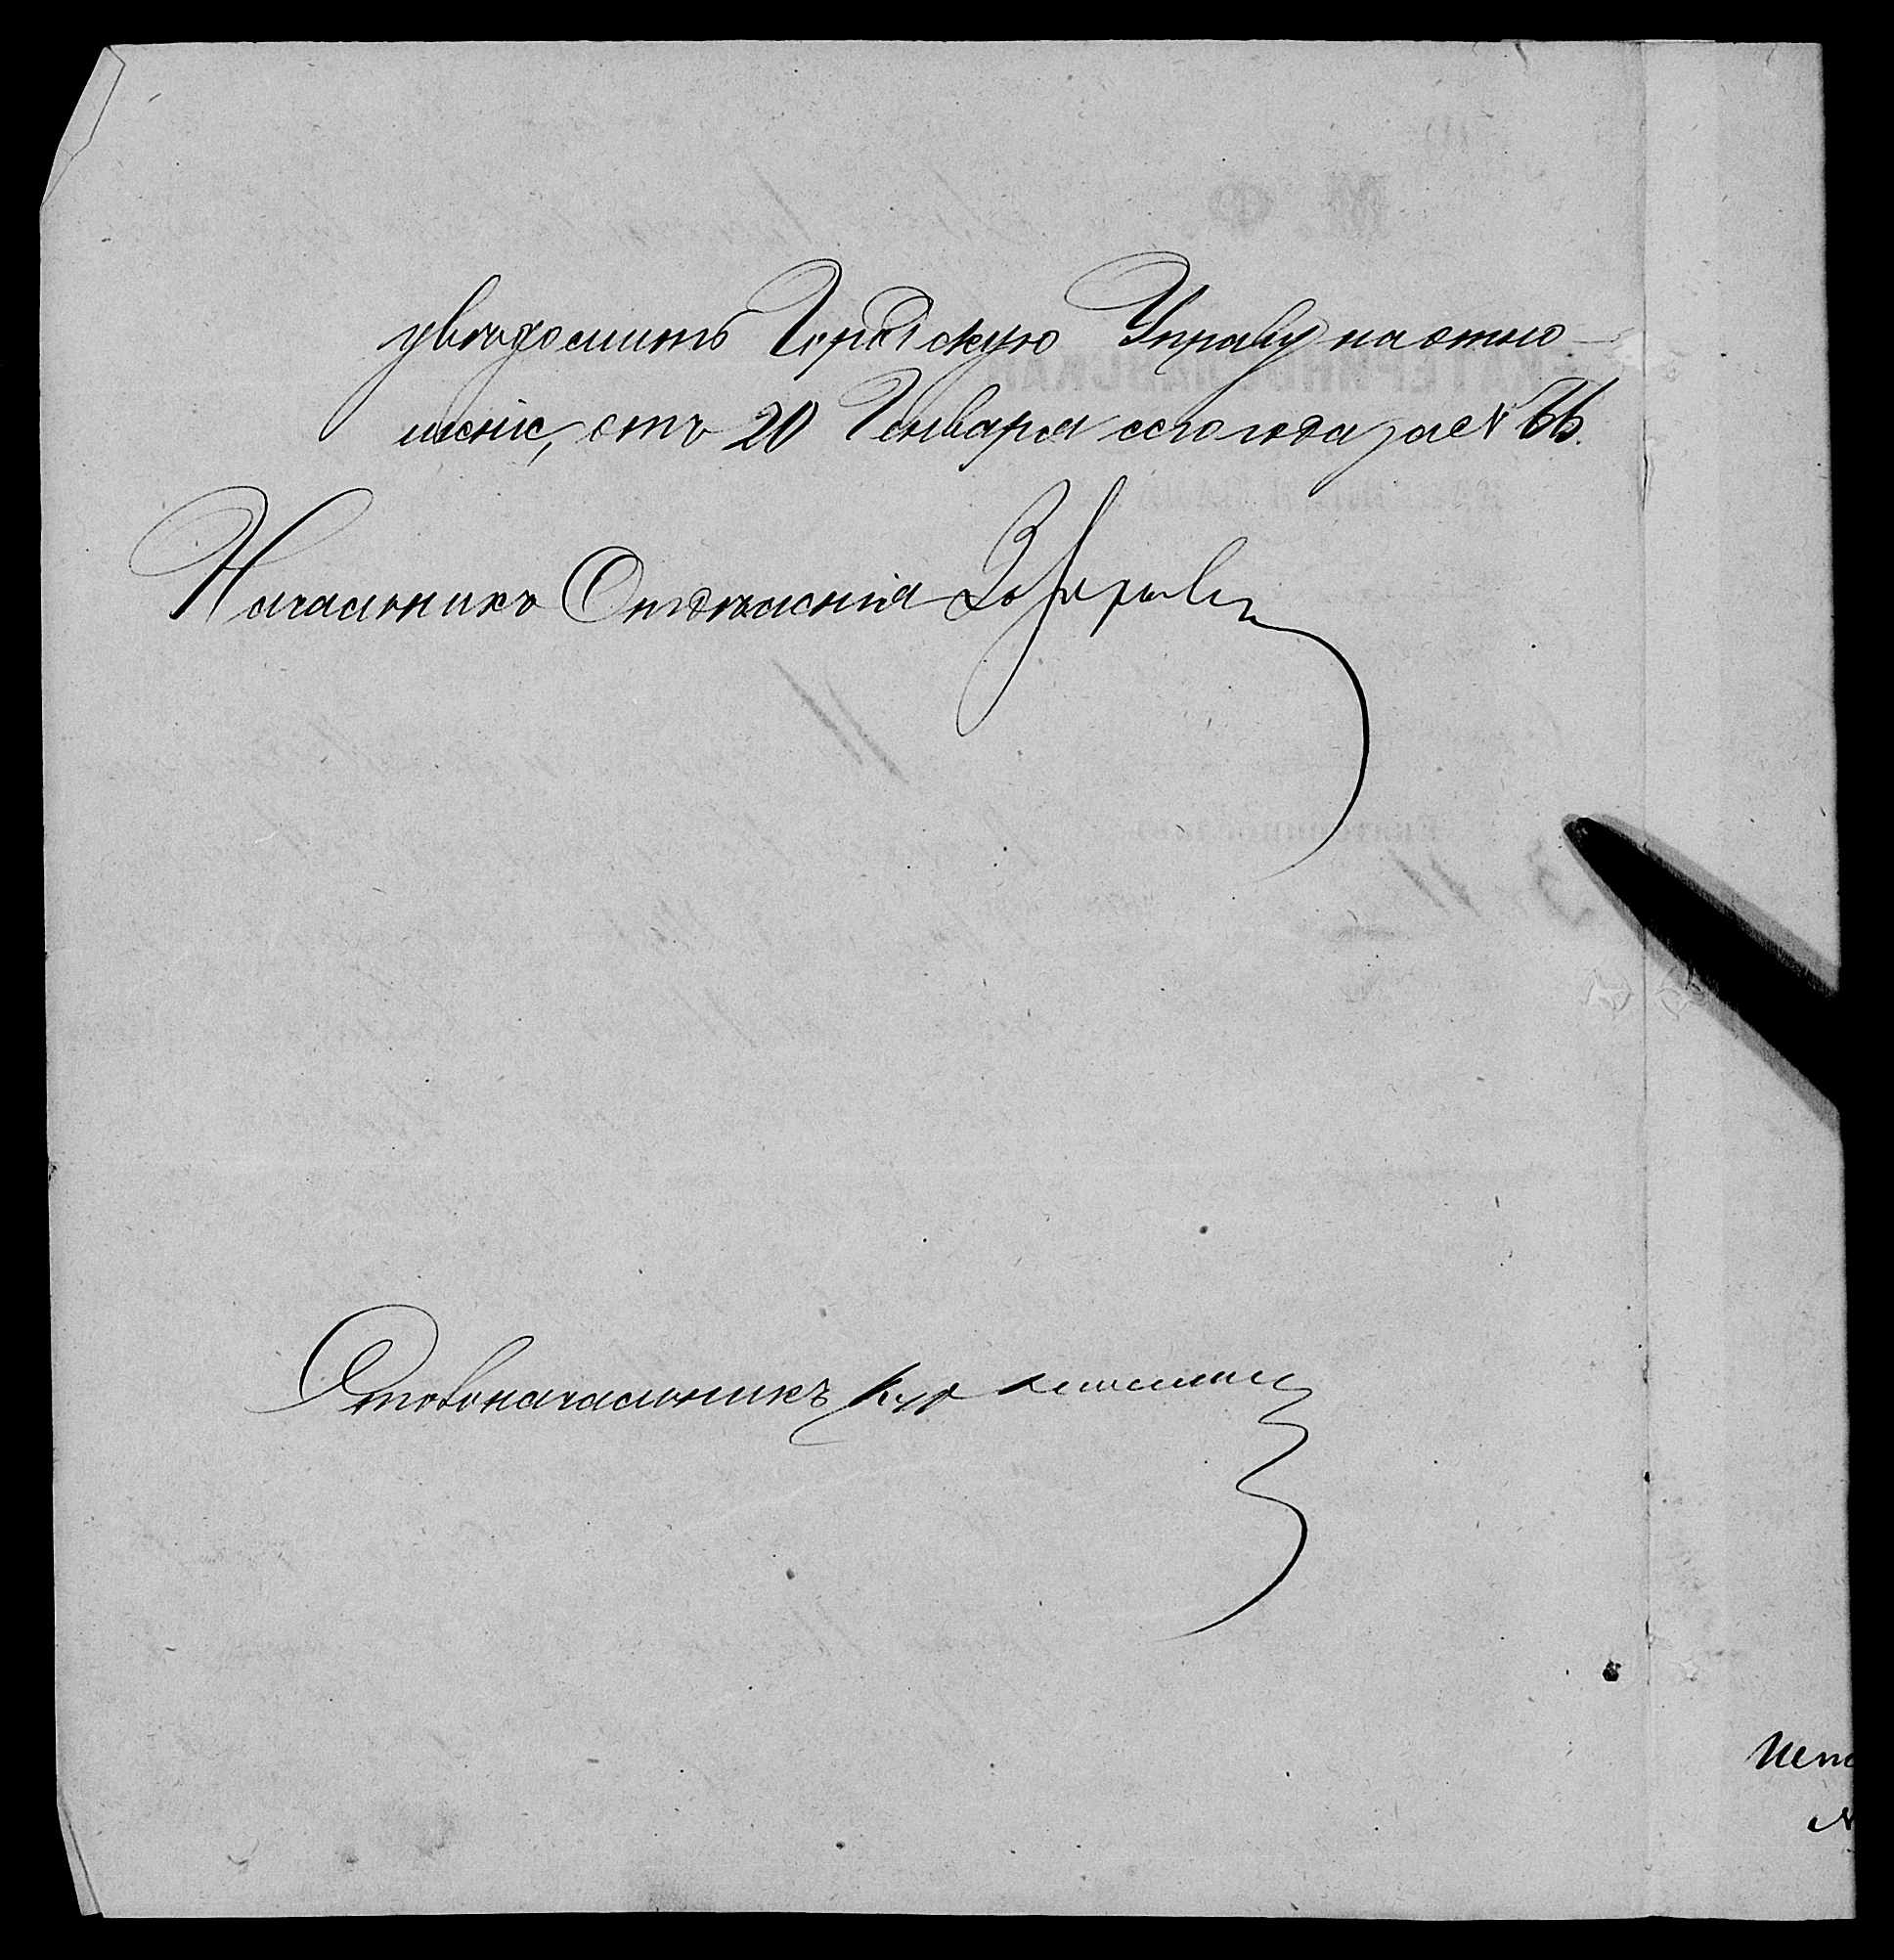 увѣдомить Городскую Управу на отно-
шеніе, отъ 20 Генваря сего года за № 66.
Начальникъ Отдѣленія
Столоначальникъ